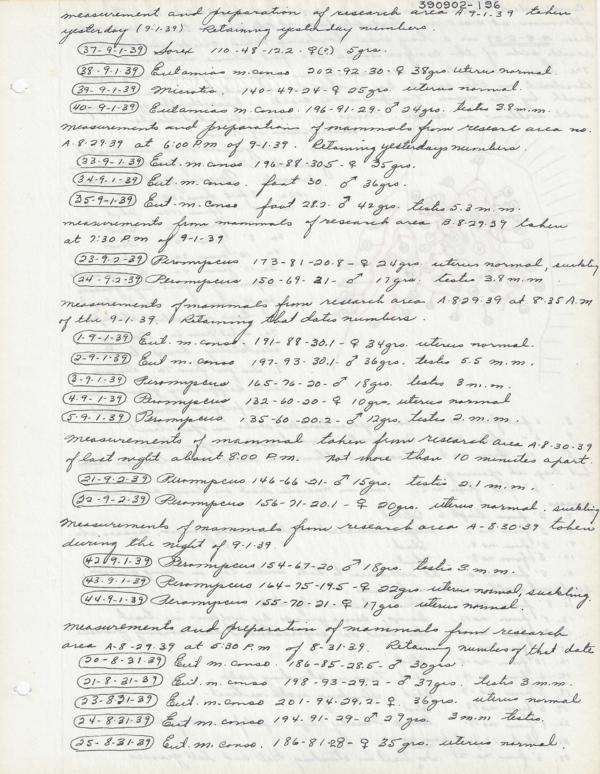 390902-196
measurement and preparation of research area A-9-1-39 taken
yesterday (9-1-39) Retaining yesterday numbers.
37-9-1-39 Sorex 110-48-12.2 - ♀(?) 5grs.
38-9-1-39 Eutamias m. conso 202-92-30-♀ 38grs. uterus normal.
39-9-1-39 Microtis, 140-49-24-♀ 25grs. uterus normal.
40-9-1-39 Eutamias m. conso. 196-91-29-♂ 24grs. testis 3.8 m.m.
measurements and preparations of mammals from research area no.
A-8-29-39 at 6:00 P.M of 9-1-39. Retaining yesterdays numbers.
33-9-1-39 Eut. m. conso 196-88-30.5-♀ 35grs.
34-9-1-39 Eut. m. conso. foot 30. ♂ 36grs.
35-9-1-39 Eut. m. conso foot 28.2. ♂ 42grs. testis 5.3 m.m.
measurements from mammals of research area B-8-29-39 taken
at 7:30 P.M of 9-1-39
23-9-2-39 Peromyscus 173-81-20.8-♀ 24grs uterus normal, suckling
24-9-2-39 Peromyscus 150-69-21-♂ 17grs. testis 3.8 m.m
measurements of mammals from research area A-829-39 at 8:35 A.M
of the 9-1-39. Retaining that dates numbers.
1-9-1-39 Eut m. conso. 191-88-30.1-♀ 34grs. uterus normal.
2-9-1-39 Eut m. conso 197-93-30.1-♂ 36grs. testis 5.5 m.m.
3-9-1-39 Peromyscus 165-76-20-♂ 18grs. testis 3 m.m.
4-9-1-39 Peromyscus 132-60-20-♀ 10grs. uterus normal
5-9-1-39 Peromyscus 135-60-20.2-♂ 12grs. testis 2. m.m.
Measurements of mammal taken from research area A-8-30-39
of last night about 8:00 P.M. not more than 10 minutes apart.
21-9-2-39 Peromyscus 146-66-21-♂ 15grs. testis 2.1 m.m.
22-9-2-39 Peromyscus 156-71-20.1-♀ 20grs. uterus normal. suckling
Measurements of mammals from research area A-8-30-39 taken
during the night of 9-1-39.
42-9-1-39 Peromyscus 154-67-20 ♂ 18grs. testis 3. m.m.
43-9-1-39 Peromyscus 164-75-19.5-♀ 22grs. uterus normal, suckling.
44-9-1-39 Peromyscus 155-70-21-♀ 17grs uterus normal.
measurements and preparation of mammals from research
area A-8-29-39 at 5:30 P.M of 8-31-39. Retaining numbers of that date
20-8-31-39 Eut m. conso. 186-85-28.5-♂ 30grs
21-8-31-39 Eut. m. conso 198-93-29.2-♂ 37grs. testis 3 m.m.
23-831-39 Eut. m. conso 201-94-29.2-♀. 36grs. uterus normal
24-8-31-39 Eut m. conso 194-91-29-♂ 29grs. 3 m.m testis.
25-8-31-39 Eut. m. conso. 186-81-28-♀ 35grs. uterus normal.